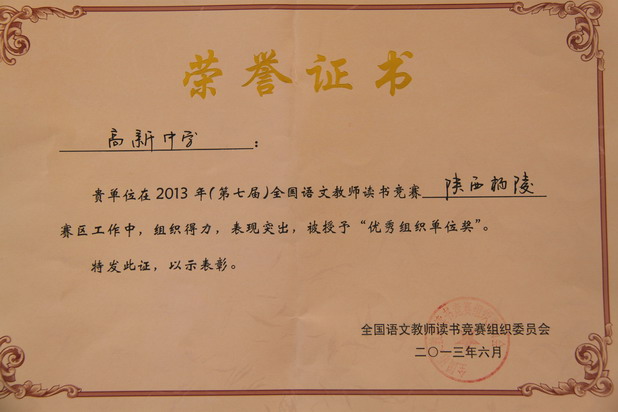 荣誉证书
高新中学：
贵单位在2013年(第七届)全国语文教师读书竞赛 陕西杨陵
赛区工作中，组织得力，表现突出，被授予“优秀组织单位奖”。
特发此证，以示表彰。
全国语文教师读书竞赛组织委员会
二〇一三年六月